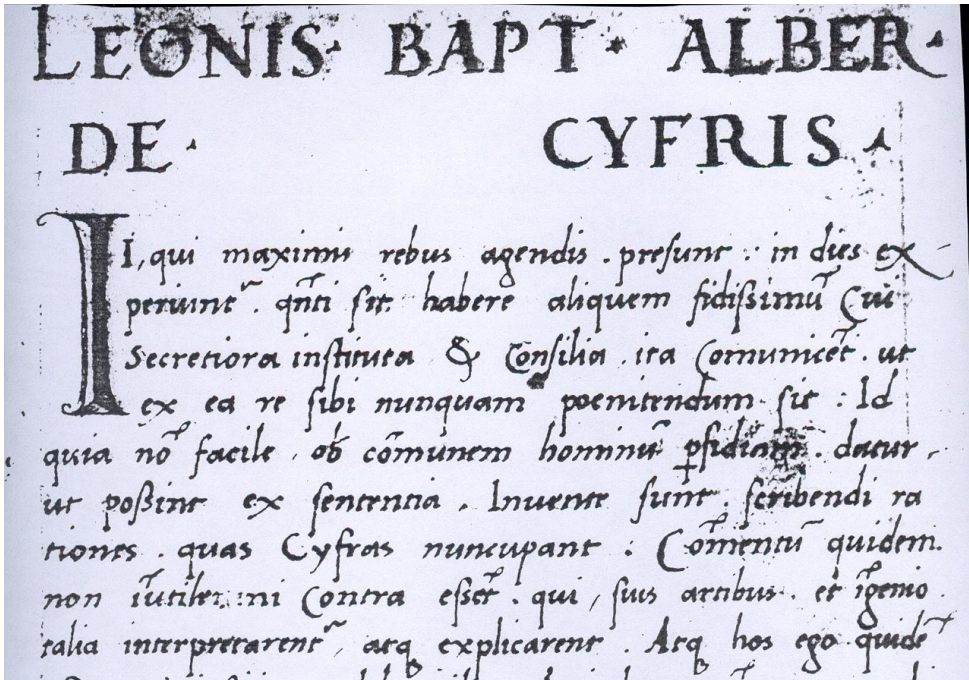 LEONIS· BAPT· ALBER·
DE· CYFRIS·
II, qui maximis rebus agendis . presunt : in dies ex
periunt᷑ . qn̄ti sit habere aliquem fidißimū Cui
Secretiora instituta & Consilia . ita Comunicēt . ut
ex ea re sibi nunquam poenitendum sit : Id
quia nō facile . ob cōmunem hominū ꝑfidiam . datur .
ut poßint ex sententia . Inuente sunt . scribendi ra
tiones . quas Cyfras nuncupant : Cōmentū quidem.
non iūtile: ni Contra essēt . qui , suis artibus . et īgenio .
talia interpretarent᷑ , atq explicarent . Atq hos ego quidē